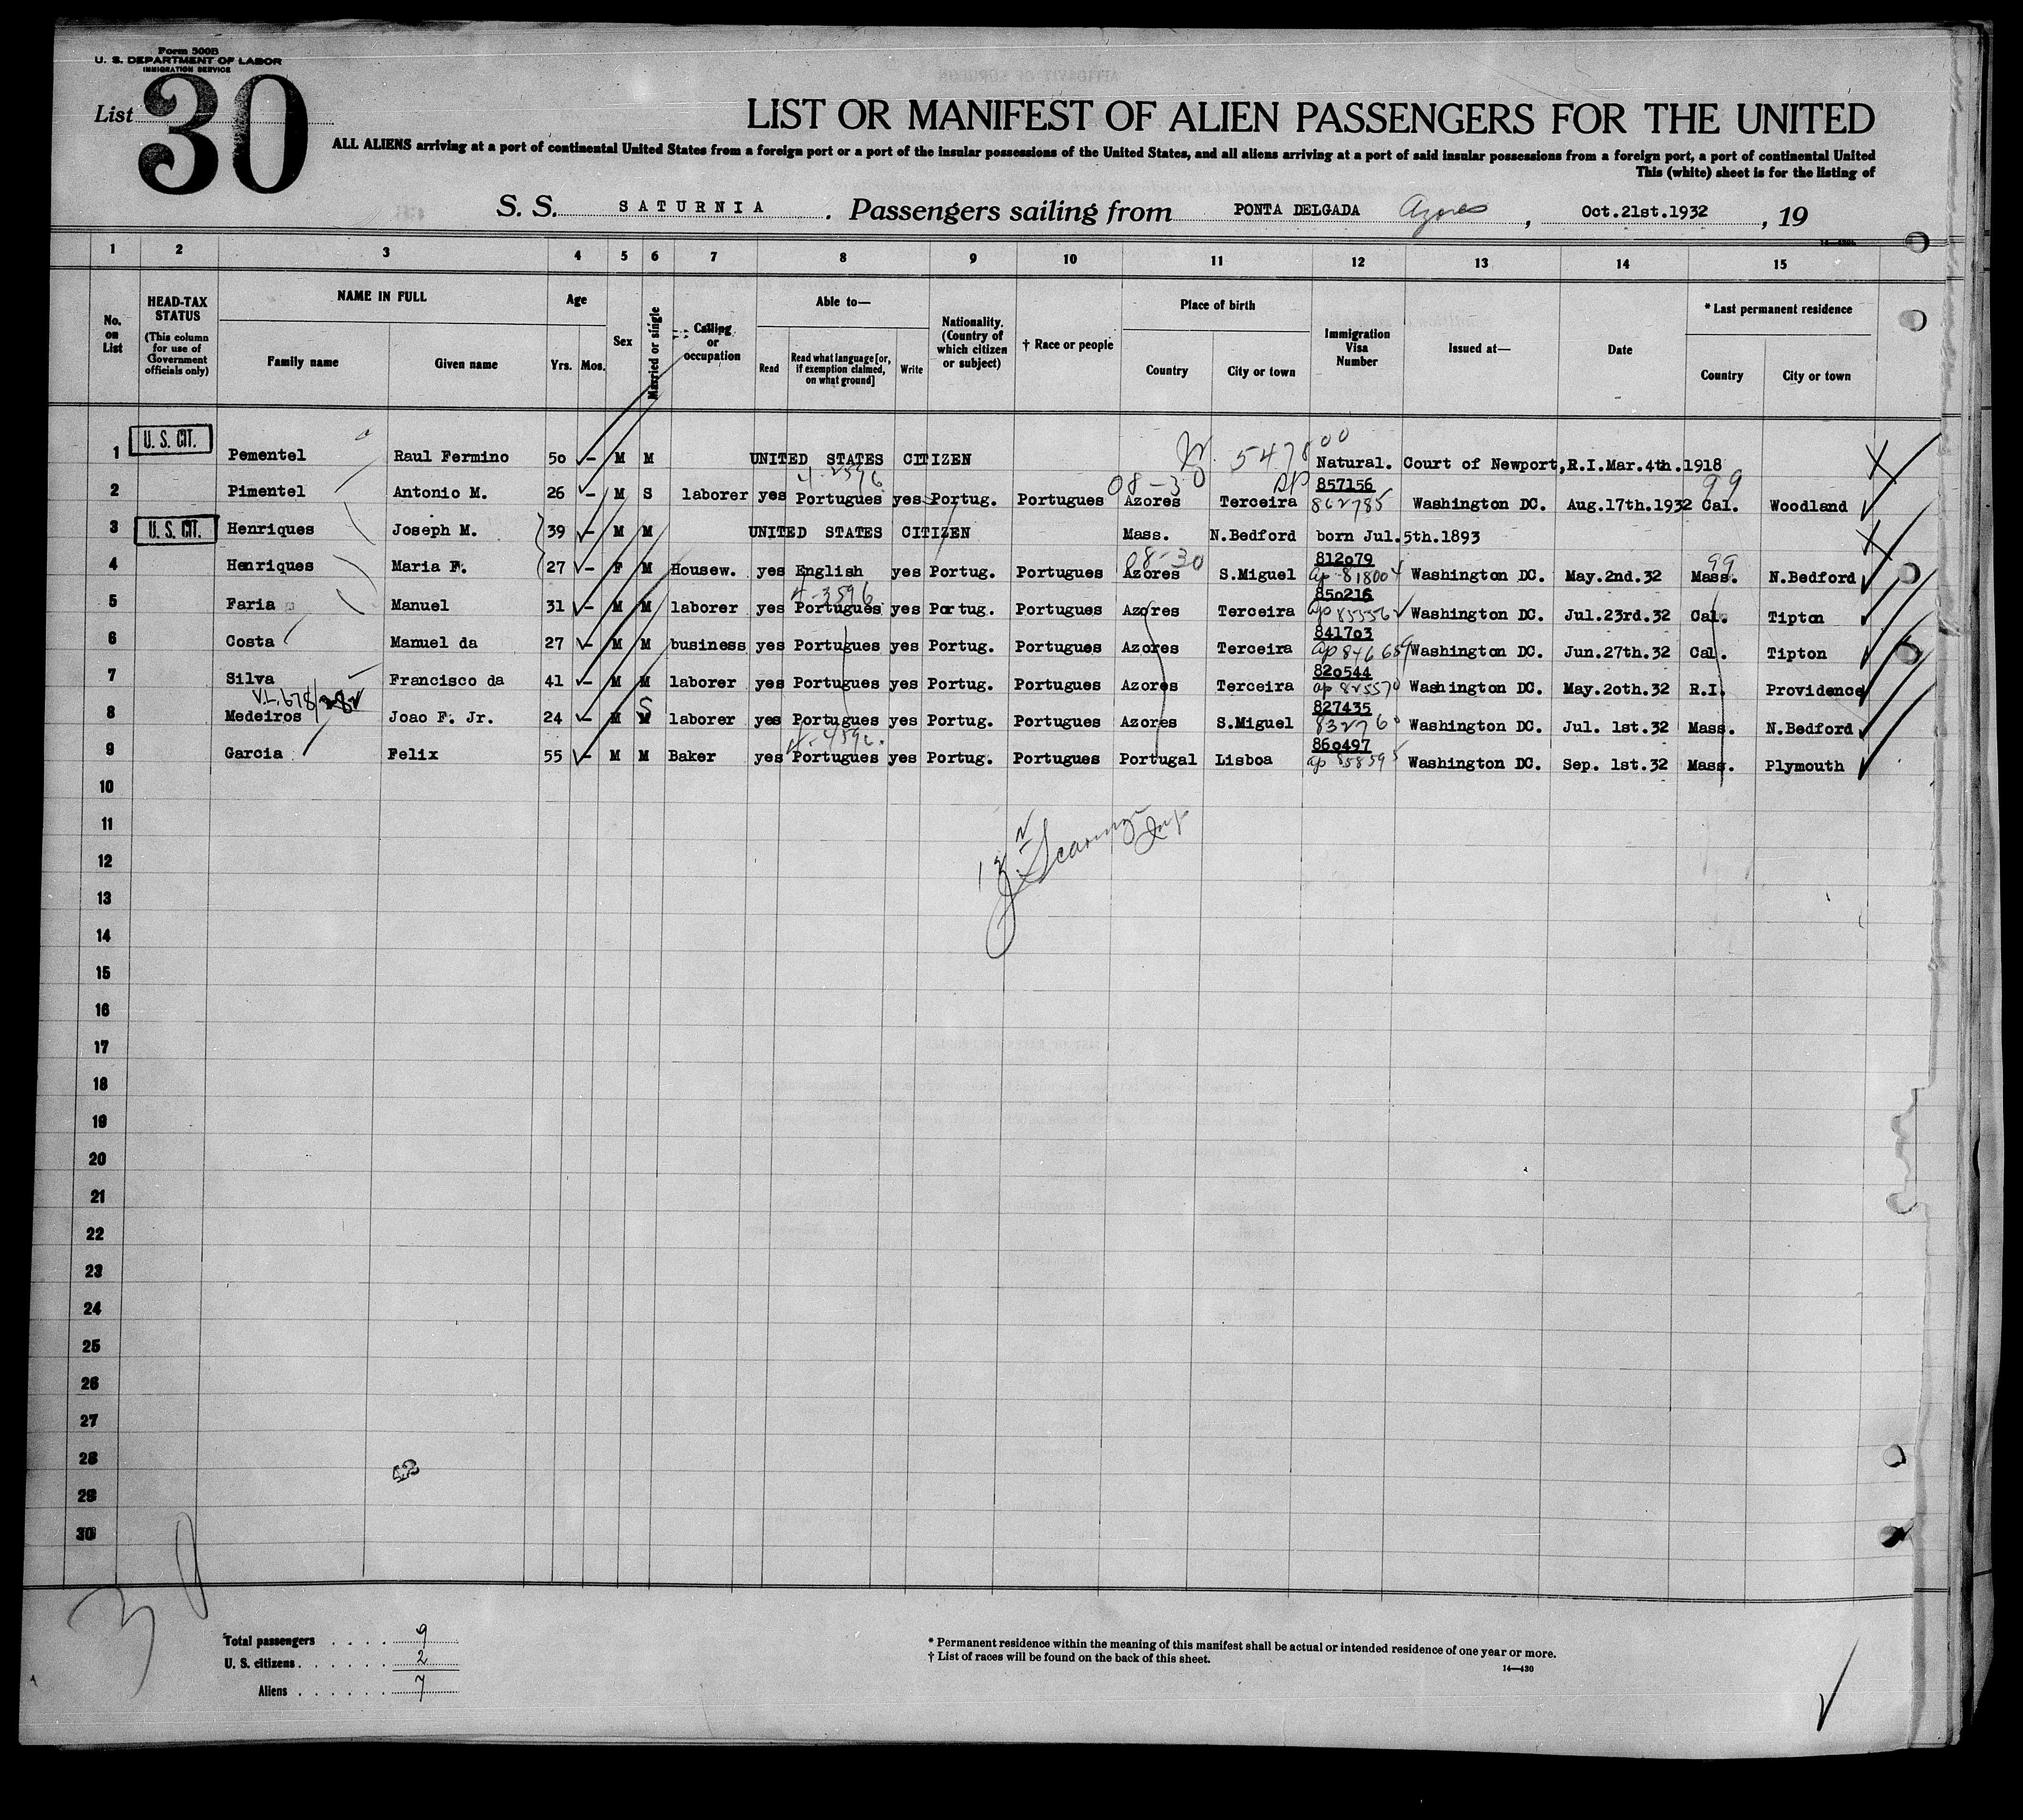 Form 500B
U. S. DEPARTMENT OF LABOR
IMMIGRATION SERVICE
List 30
LIST OR MANIFEST OF ALIEN PASSENGERS FOR THE UNITED
ALL ALIENS arriving at a port of continental United States from a foreign port or a port of the insular possessions of the United States, and all aliens arriving at a port of said insular possessions from a foreign port, a port of continental United
This (white) sheet is for the listing of
S. S. SATURNIA . Passengers sailing from PONTA DELGADA Azores , Oct.21st.1932 , 19
1 2 3 4 5 6 7 8 9 10 11 12 13 14 15
No. on List
HEAD-TAX STATUS (This column for use of Government officials only)
NAME IN FULL
Family name Given name
Age
Yrs. Mos.
Sex
Married or single
Calling or occupation
Able to—
Read Read what language [or, if exemption claimed, on what ground] Write
Nationality. (Country of which citizen or subject)
† Race or people
Place of birth
Country City or town
Immigration Visa Number
Issued at—
Date
* Last permanent residence
Country City or town
1 U. S. CIT. Pementel Raul Fermino 50 - M M UNITED STATES CITIZEN Natural. Court of Newport,R.I.Mar.4th.1918
4-2596 08-30 857156 99
2 Pimentel Antonio M. 26 - M S laborer yes Portugues yes Portug. Portugues Azores Terceira 862785 Washington DC. Aug.17th.1932 Cal. Woodland
3 U. S. CIT. Henriques Joseph M. 39 - M M UNITED STATES CITIZEN Mass. N.Bedford born Jul.5th.1893
08-30 812079 99
4 Henriques Maria F. 27 - F M Housew. yes English yes Portug. Portugues Azores S.Miguel ap 818004 Washington DC. May.2nd.32 Mass. N.Bedford
4-3596 850216
5 Faria Manuel 31 - M M laborer yes Portugues yes Portug. Portugues Azores Terceira ap 855562 Washington DC. Jul.23rd.32 Cal. Tipton
841703
6 Costa Manuel da 27 - M M business yes Portugues yes Portug. Portugues Azores Terceira ap 846659 Washington DC. Jun.27th.32 Cal. Tipton
820544
7 Silva Francisco da 41 - M M laborer yes Portugues yes Portug. Portugues Azores Terceira ap 825570 Washington DC. May.20th.32 R.I. Providence
V.L. 678 S 827435
8 Medeiros Joao F. Jr. 24 - M M laborer yes Portugues yes Portug. Portugues Azores S.Miguel 832760 Washington DC. Jul. 1st.32 Mass. N.Bedford
4-4596. 860497
9 Garcia Felix 55 - M M Baker yes Portugues yes Portug. Portugues Portugal Lisboa ap 858595 Washington DC. Sep. 1st.32 Mass. Plymouth
10
11
12
13
14
15
16
17
18
19
20
21
22
23
24
25
26
27
28
29
30
30
Total passengers . . . . 9
U. S. citizens . . . . . . 2
Aliens . . . . . . 7
* Permanent residence within the meaning of this manifest shall be actual or intended residence of one year or more.
† List of races will be found on the back of this sheet.
14—430